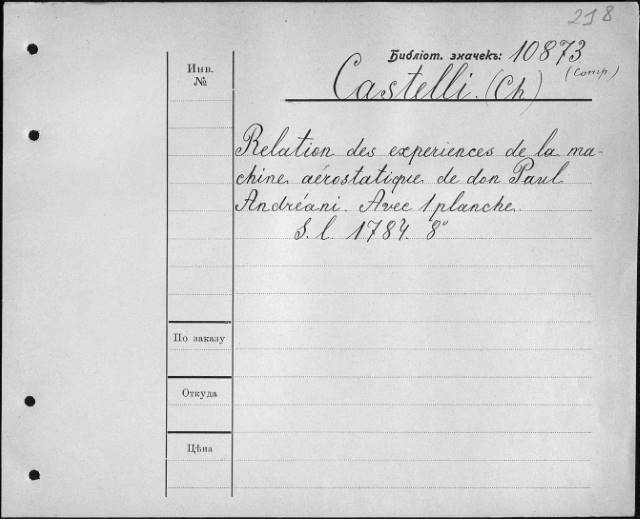 218
Библіот. значекъ: 10873
(comp)
Инв.
№
Castelli. (Ch)
Relation des experiences de la ma-
chine aérostatique de don Paul
Andréani. Avec 1 planche.
S. l. 1784. 8°
По заказу
Откуда
Цѣна